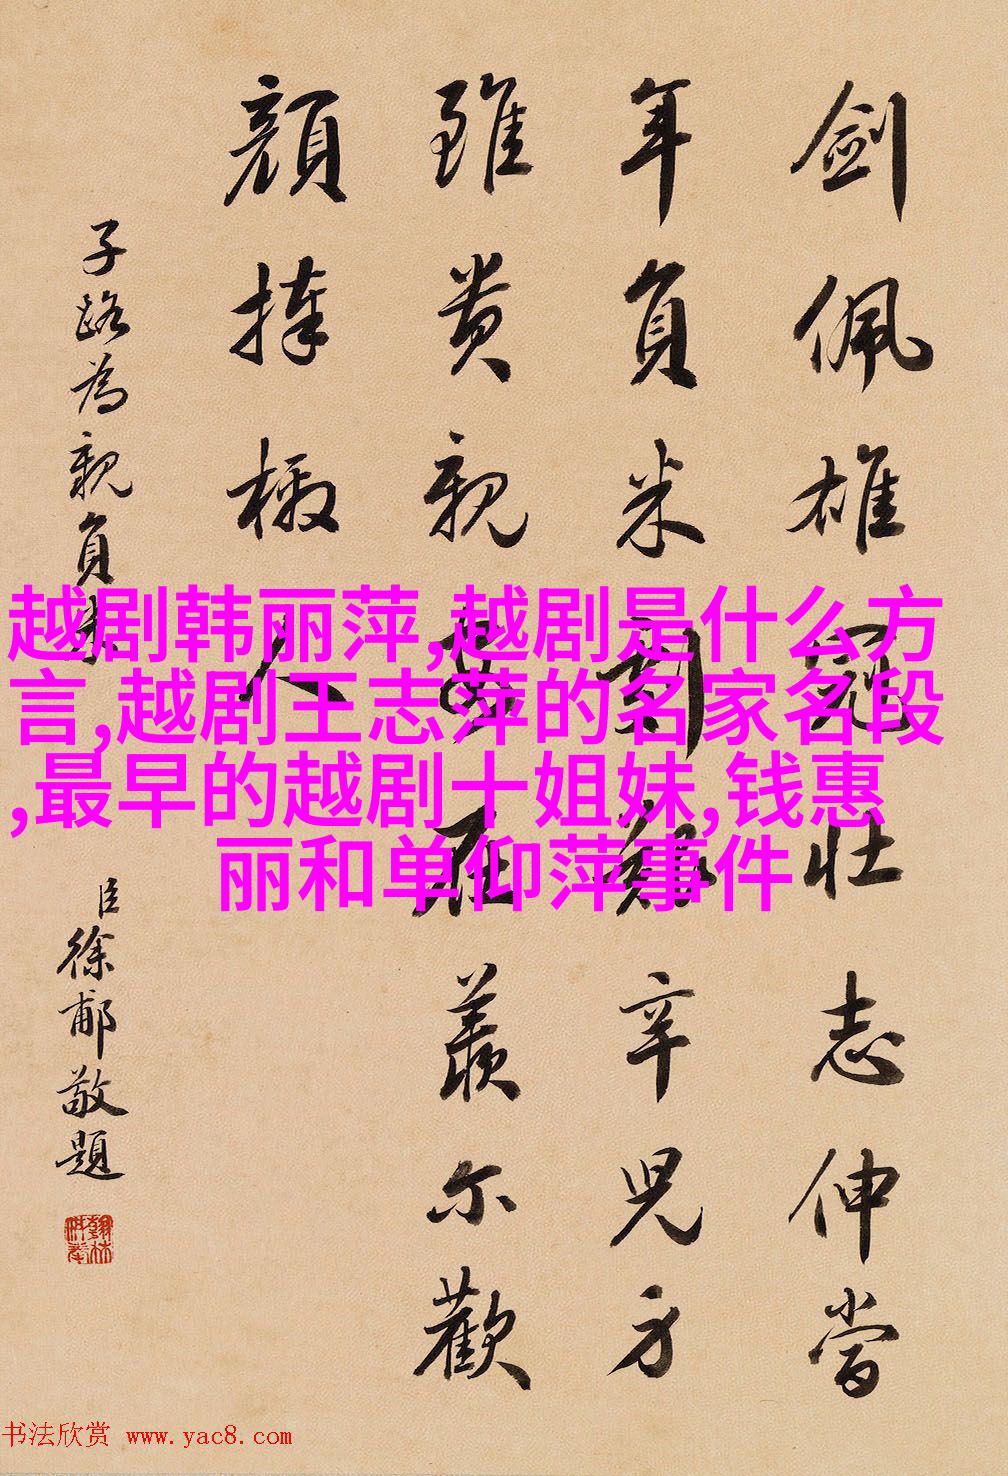 越剧韩丽萍,越剧是什么方
言,越剧王志萍的名家名段
,最早的越剧十姐妹,钱惠
丽和单仰萍事件
劍佩雄冠壯志伸當
年負米劇艱辛兒方
雖貴親安在羨爾歡
顏捧檄人
子路為親負米
臣徐郙敬題
书法欣赏 www.yac8.com